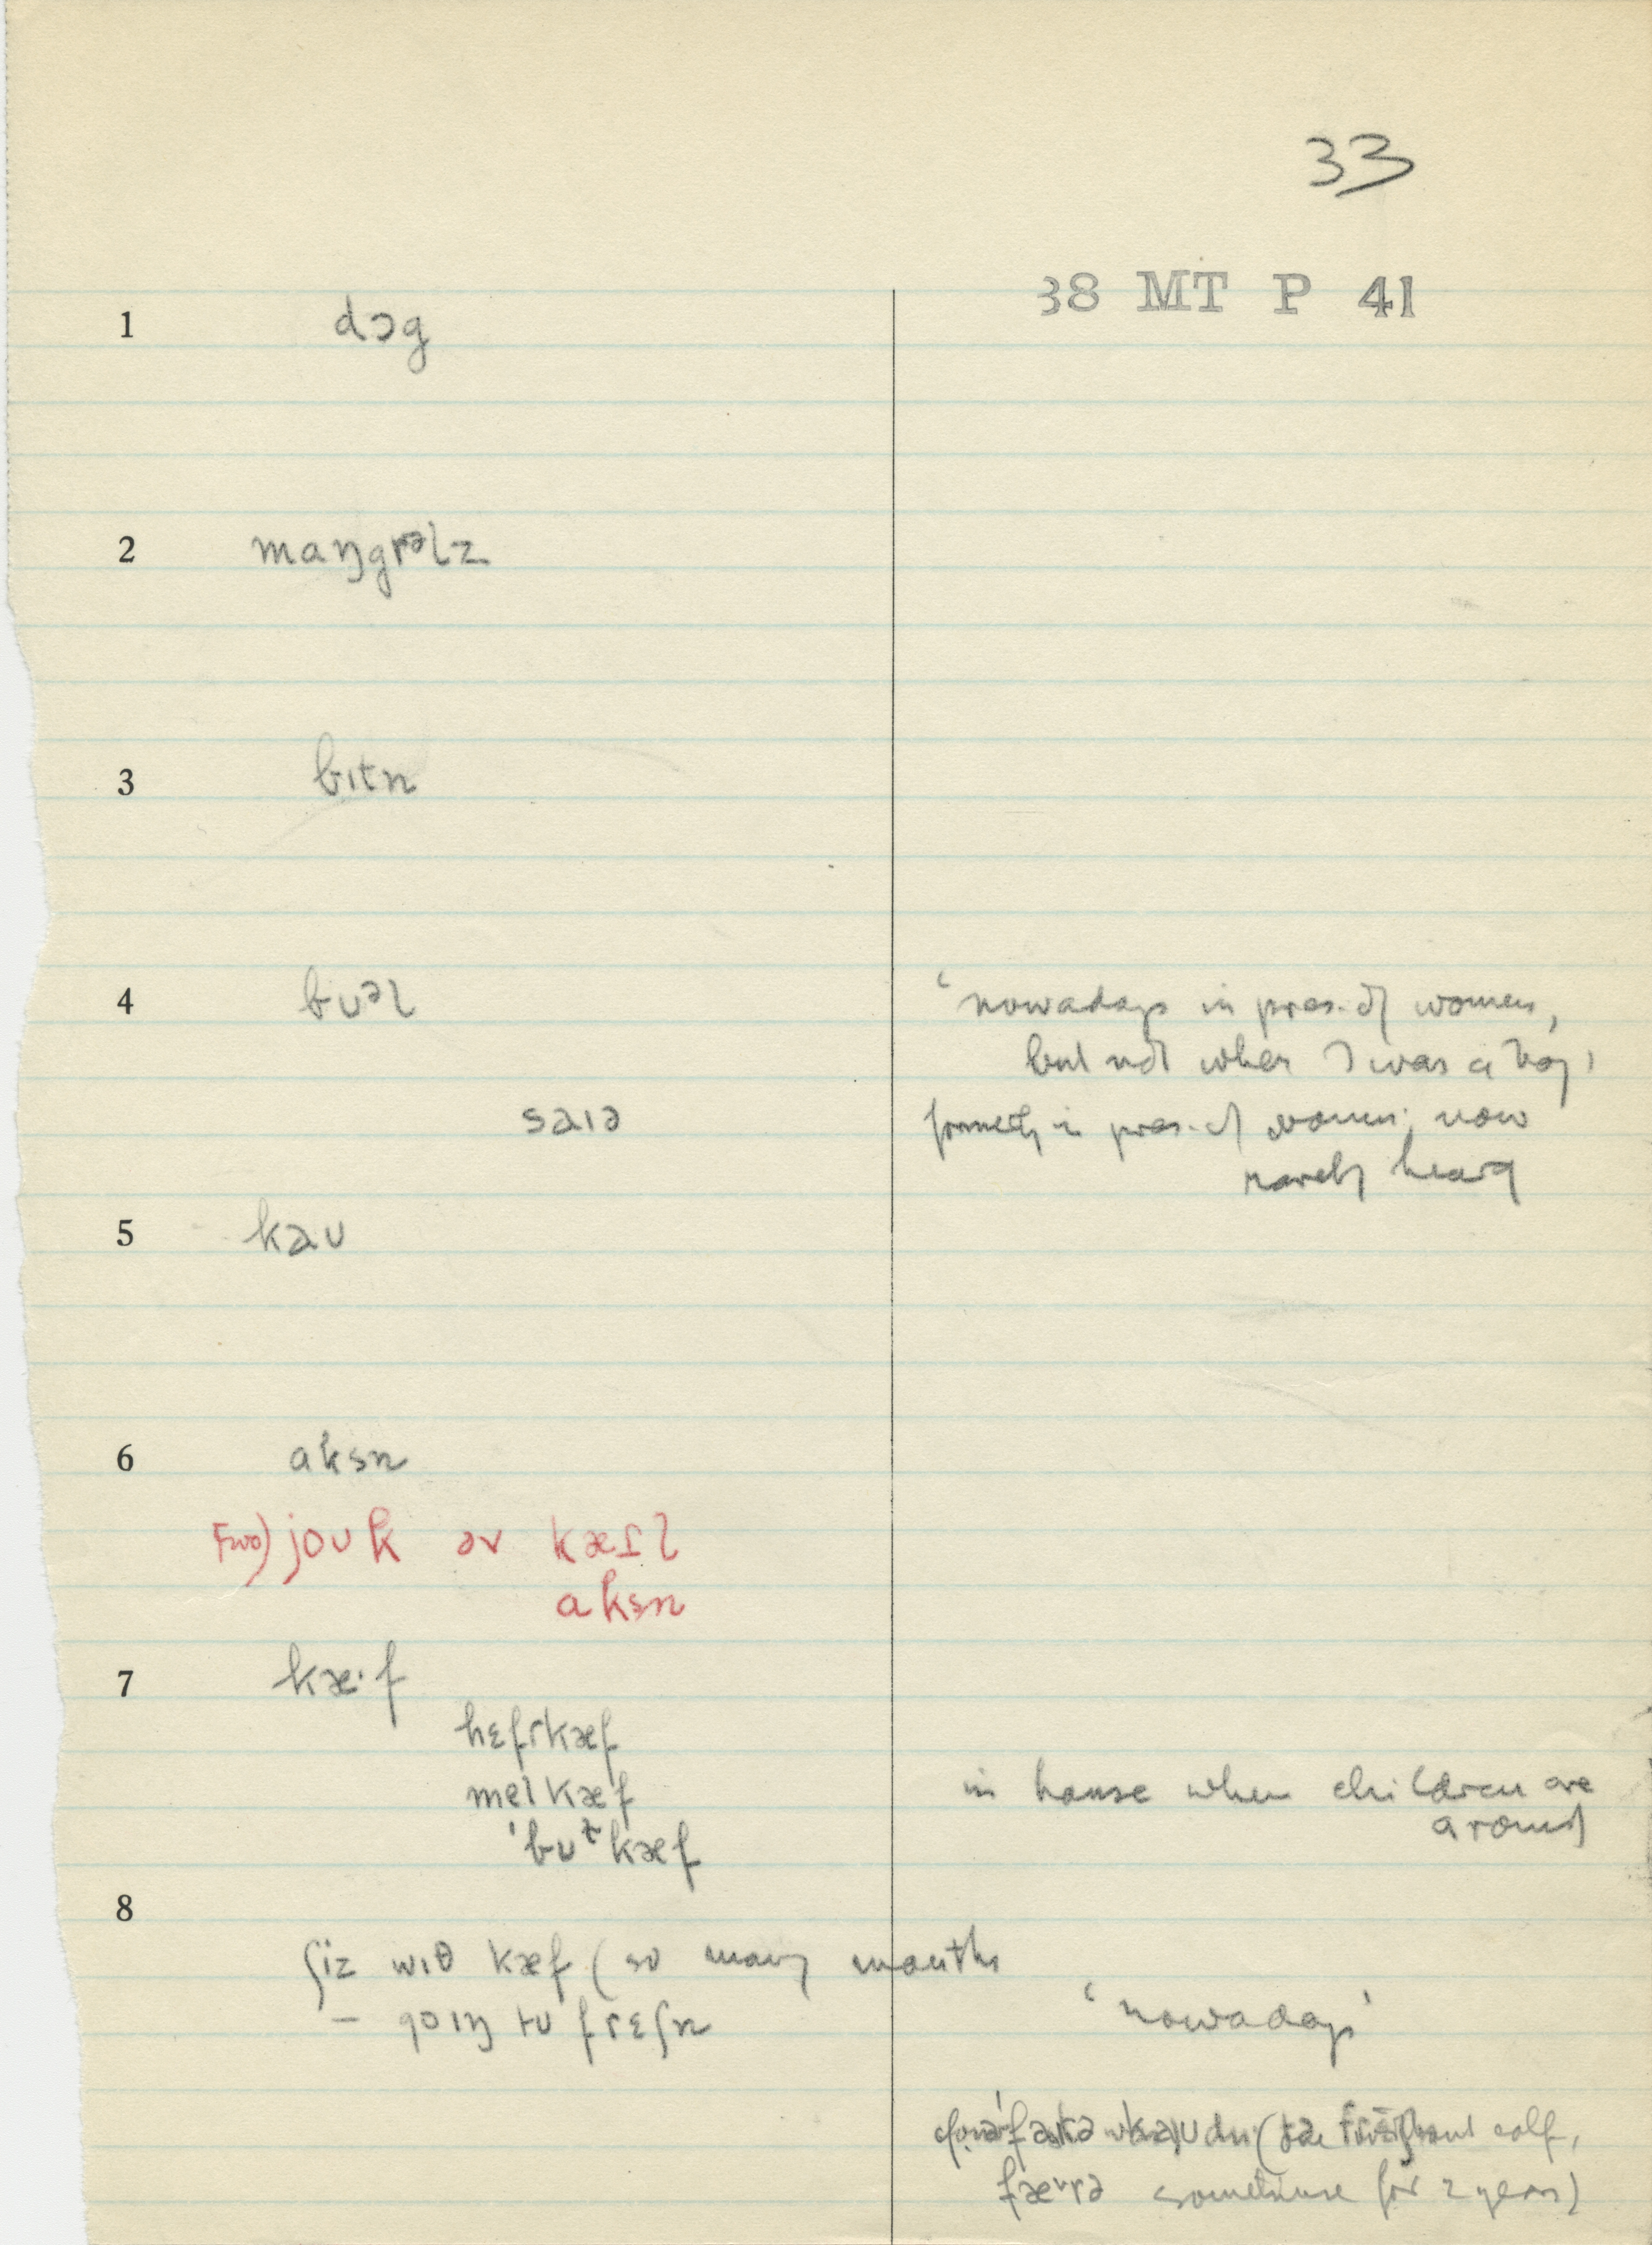 33
38 MT P 41
1 dɔg
2 maŋgrəlz
3 bɪtn
4 bʊəl
'nowadays in pres. of women,
but not when I was a boy'
saɪə
formerly in pres. of women; now
rarely heard
5 kaʊ
6 aksn
joʊk əv kætl
aksn
7 kæ·f
hɛfrkæf
melkæf
'bʊtkæf
in house when children are
around
8
ʃiz wɪθ kæf (so many months
– goɪŋ tu frɛʃn
'nowadays'
calf,
sometimes for 2 years)